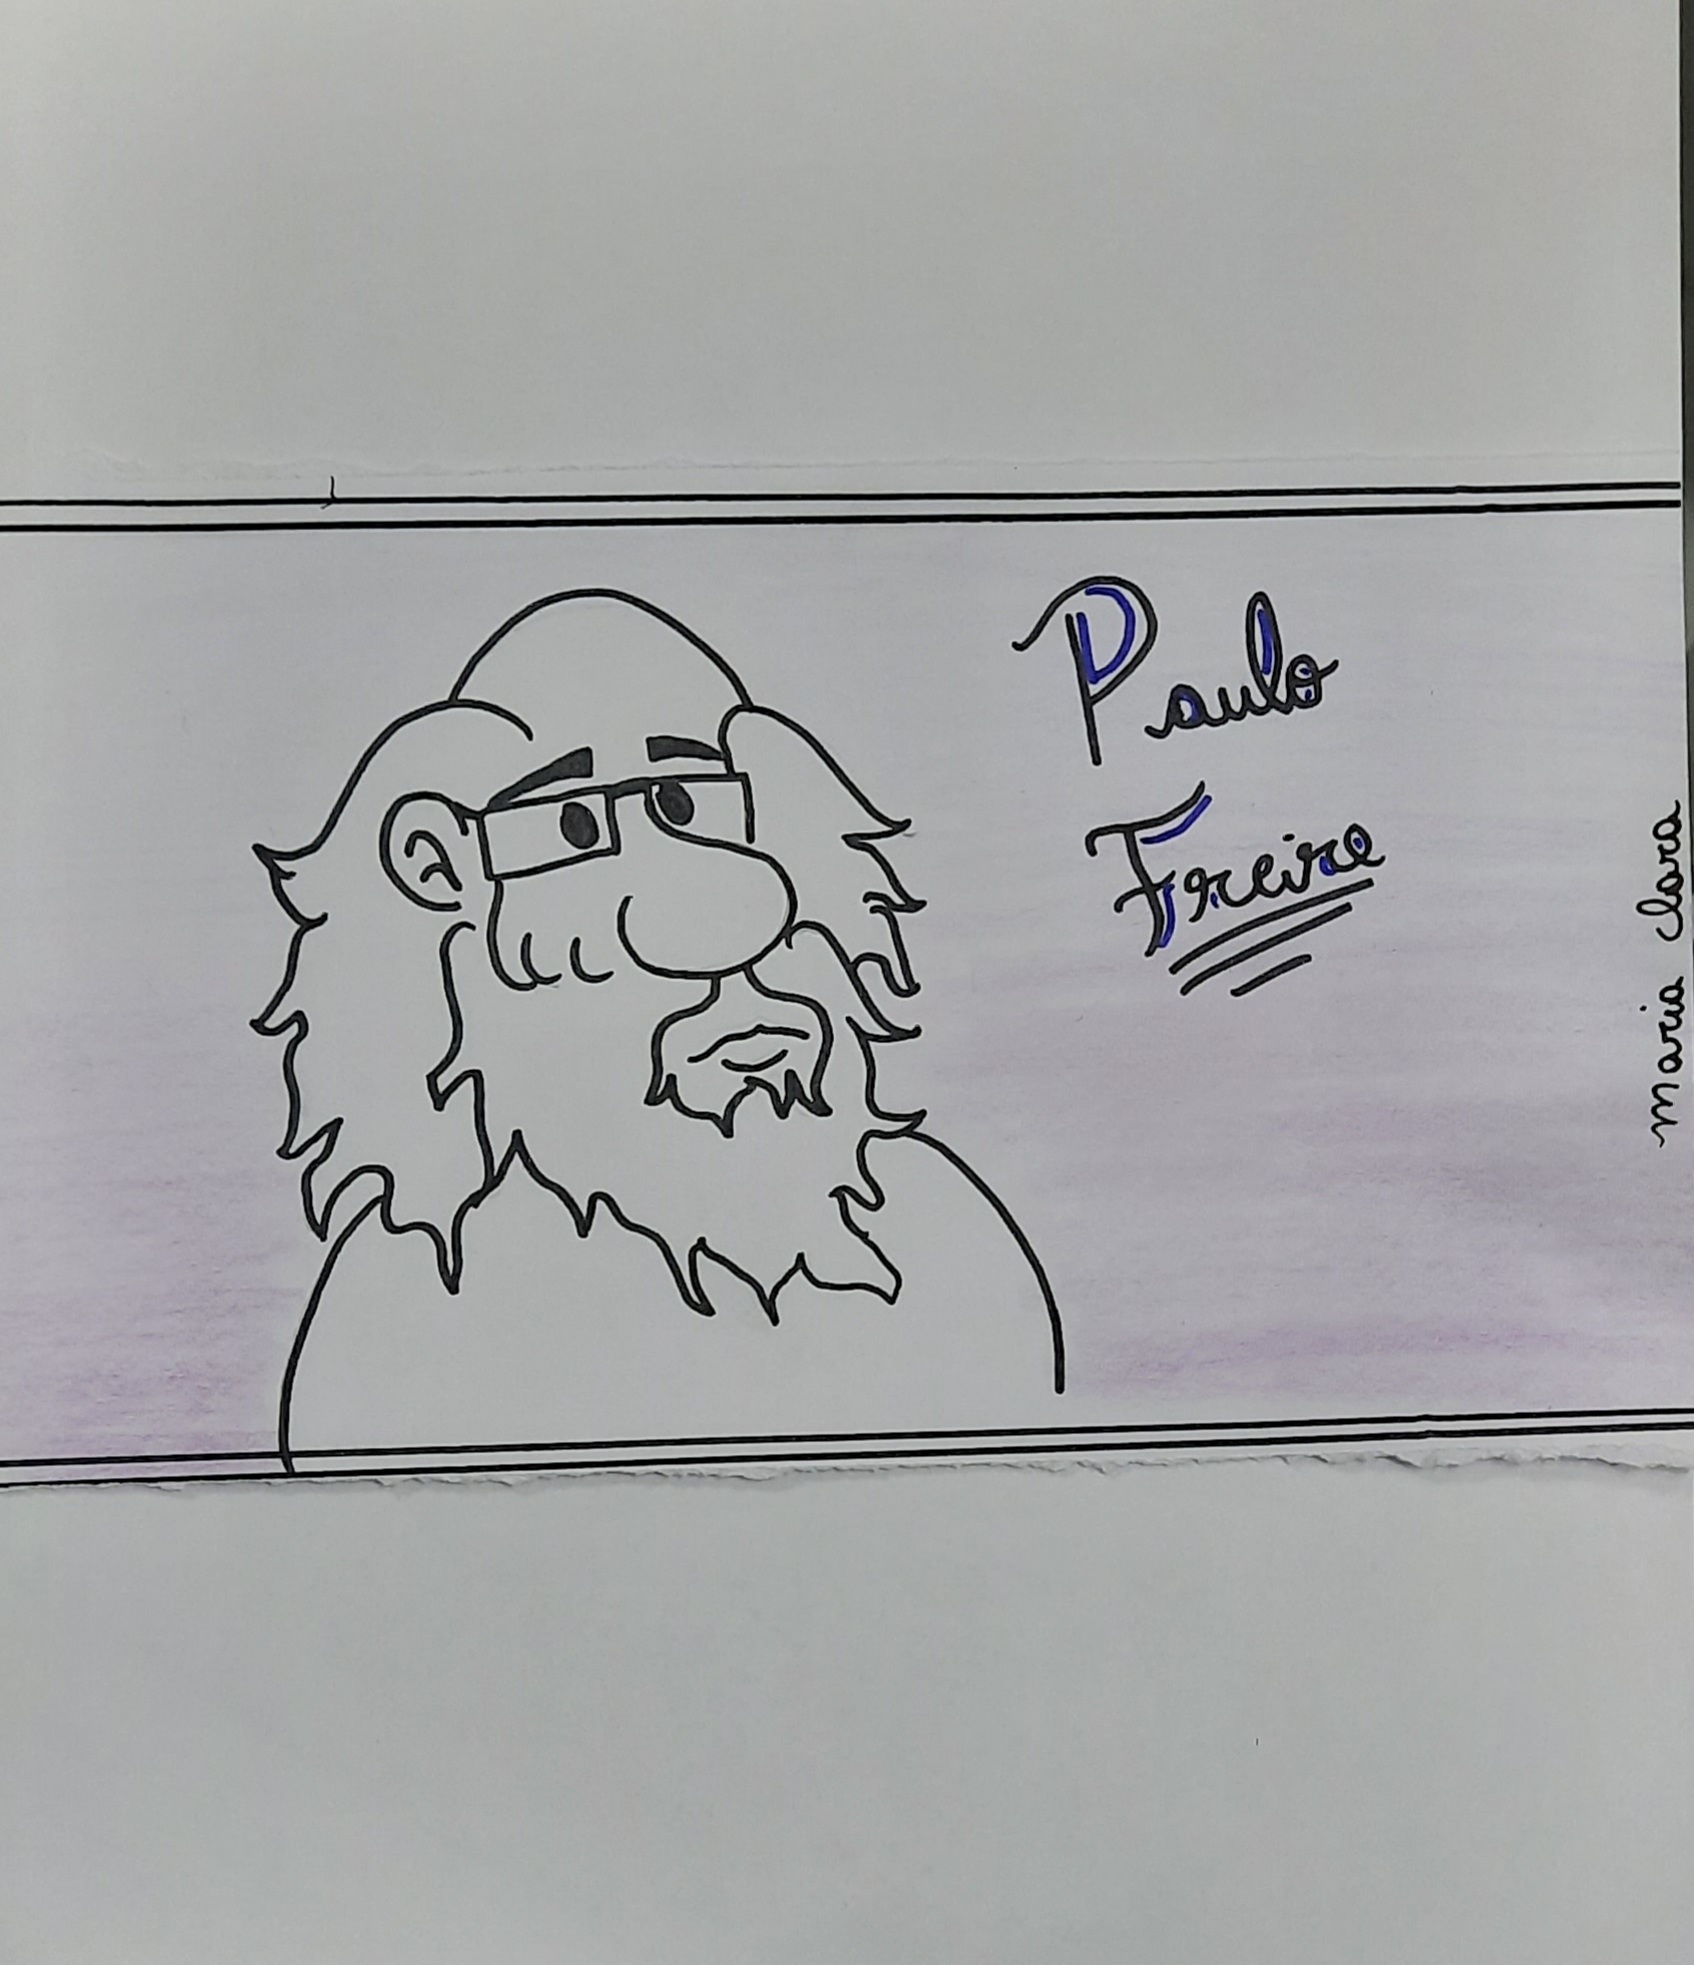 Paulo
Freire
maria clara